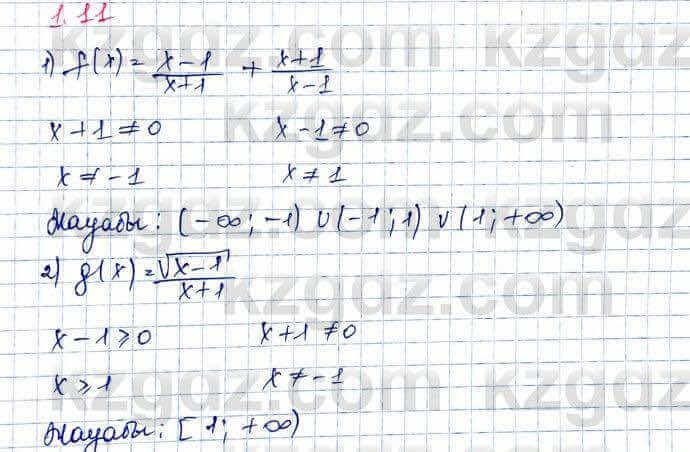 1.11
1) f(x) = (x-1)/(x+1) + (x+1)/(x-1)
x+1≠0 x-1≠0
x≠-1 x≠1
Жауабы: (-∞; -1) ∪ (-1; 1) ∪ (1; +∞)
2) g(x) = √(x-1)/(x+1)
x-1⩾0 x+1≠0
x⩾1 x≠-1
Жауабы: [1; +∞)
kzgdz.com
kzgdz.com
kzgdz.com
kzgdz.com
kzgdz.com